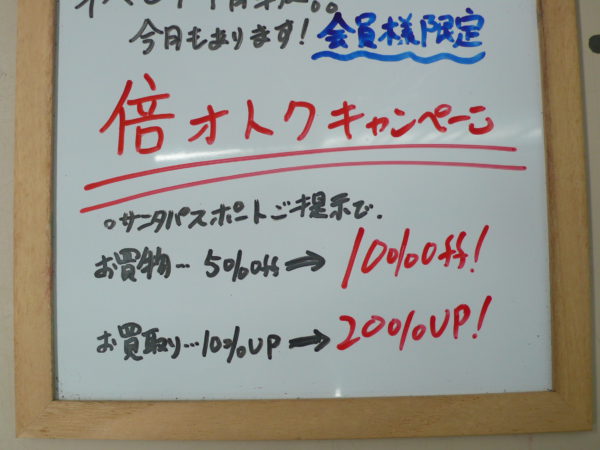 今月もあります! 会員様限定
倍オトクキャンペーン
○サンタパスポートご提示で.
お買物… 5%off → 10%off!
お買取り…10%UP → 20%UP!